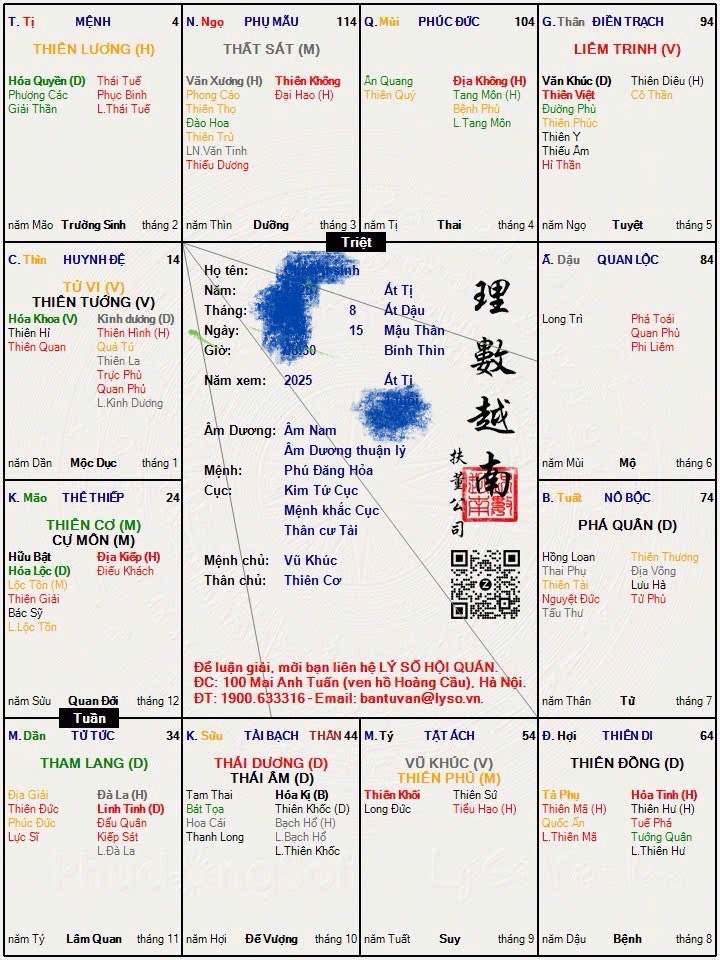 T. Tị MỆNH 4
THIÊN LƯƠNG (H)
Hóa Quyền (Đ) Thái Tuế
Phượng Các Phục Binh
Giải Thần L.Thái Tuế
năm Mão Trường Sinh tháng 2
N. Ngọ PHỤ MẪU 114
THẤT SÁT (M)
Văn Xương (H) Thiên Không
Phong Cáo Đại Hao (H)
Thiên Thọ
Đào Hoa
Thiên Trù
LN.Văn Tinh
Thiếu Dương
năm Thìn Dưỡng tháng 3
Q. Mùi PHÚC ĐỨC 104
Ân Quang Địa Không (H)
Thiên Quý Tang Môn (H)
Bệnh Phù
L.Tang Môn
năm Tị Thai tháng 4
G. Thân ĐIỀN TRẠCH 94
LIÊM TRINH (V)
Văn Khúc (Đ) Thiên Diêu (H)
Thiên Việt Cô Thần
Đường Phù
Thiên Phúc
Thiên Y
Thiếu Âm
Hỉ Thần
năm Ngọ Tuyệt tháng 5
Triệt
C. Thìn HUYNH ĐỆ 14
TỬ VI (V)
THIÊN TƯỚNG (V)
Hóa Khoa (V) Kình dương (Đ)
Thiên Hỉ Thiên Hình (H)
Thiên Quan Quả Tú
Thiên La
Trực Phù
Quan Phủ
L.Kình Dương
năm Dần Mộc Dục tháng 1
Họ tên:
Năm: Ất Tị
Tháng: 8 Ất Dậu
Ngày: 15 Mậu Thân
Giờ: Bính Thìn
Năm xem: 2025 Ất Tị
Âm Dương: Âm Nam
Âm Dương thuận lý
Mệnh: Phú Đăng Hỏa
Cục: Kim Tứ Cục
Mệnh khắc Cục
Thân cư Tài
Mệnh chủ: Vũ Khúc
Thân chủ: Thiên Cơ
理數越南
扶董公司
Để luận giải, mời bạn liên hệ LÝ SỐ HỘI QUÁN.
ĐC: 100 Mai Anh Tuấn (ven hồ Hoàng Cầu), Hà Nội.
ĐT: 1900.633316 - Email: bantuvan@lyso.vn.
Ấ. Dậu QUAN LỘC 84
Long Trì Phá Toái
Quan Phù
Phi Liêm
năm Mùi Mộ tháng 6
K. Mão THÊ THIẾP 24
THIÊN CƠ (M)
CỰ MÔN (M)
Hữu Bật Địa Kiếp (H)
Hóa Lộc (Đ) Điếu Khách
Lộc Tồn (M)
Thiên Giải
Bác Sỹ
L.Lộc Tồn
năm Sửu Quan Đới tháng 12
B. Tuất NÔ BỘC 74
PHÁ QUÂN (Đ)
Hồng Loan Thiên Thương
Thai Phụ Địa Võng
Thiên Tài Lưu Hà
Nguyệt Đức Tử Phù
Tấu Thư
năm Thân Tử tháng 7
Tuần
M. Dần TỬ TỨC 34
THAM LANG (Đ)
Địa Giải Đà La (H)
Thiên Đức Linh Tinh (Đ)
Phúc Đức Đẩu Quân
Lực Sĩ Kiếp Sát
L.Đà La
năm Tý Lâm Quan tháng 11
K. Sửu TÀI BẠCH THÂN 44
THÁI DƯƠNG (Đ)
THÁI ÂM (Đ)
Tam Thai Hóa Kị (B)
Bát Tọa Thiên Khốc (Đ)
Hoa Cái Bạch Hổ (H)
Thanh Long L.Bạch Hổ
L.Thiên Khốc
năm Hợi Đế Vượng tháng 10
M. Tý TẬT ÁCH 54
VŨ KHÚC (V)
THIÊN PHỦ (M)
Thiên Khôi Thiên Sứ
Long Đức Tiểu Hao (H)
năm Tuất Suy tháng 9
Đ. Hợi THIÊN DI 64
THIÊN ĐỒNG (Đ)
Tả Phụ Hỏa Tinh (H)
Thiên Mã (H) Thiên Hư (H)
Quốc Ấn Tuế Phá
L.Thiên Mã Tướng Quân
L.Thiên Hư
năm Dậu Bệnh tháng 8